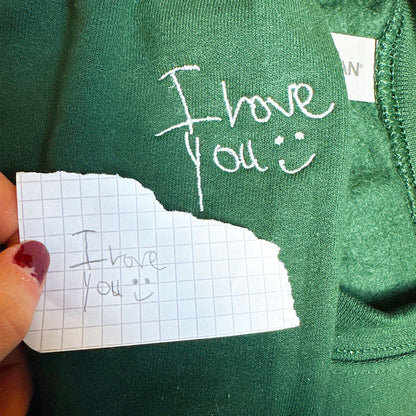 AN®
I love
You :)
I love
You :)